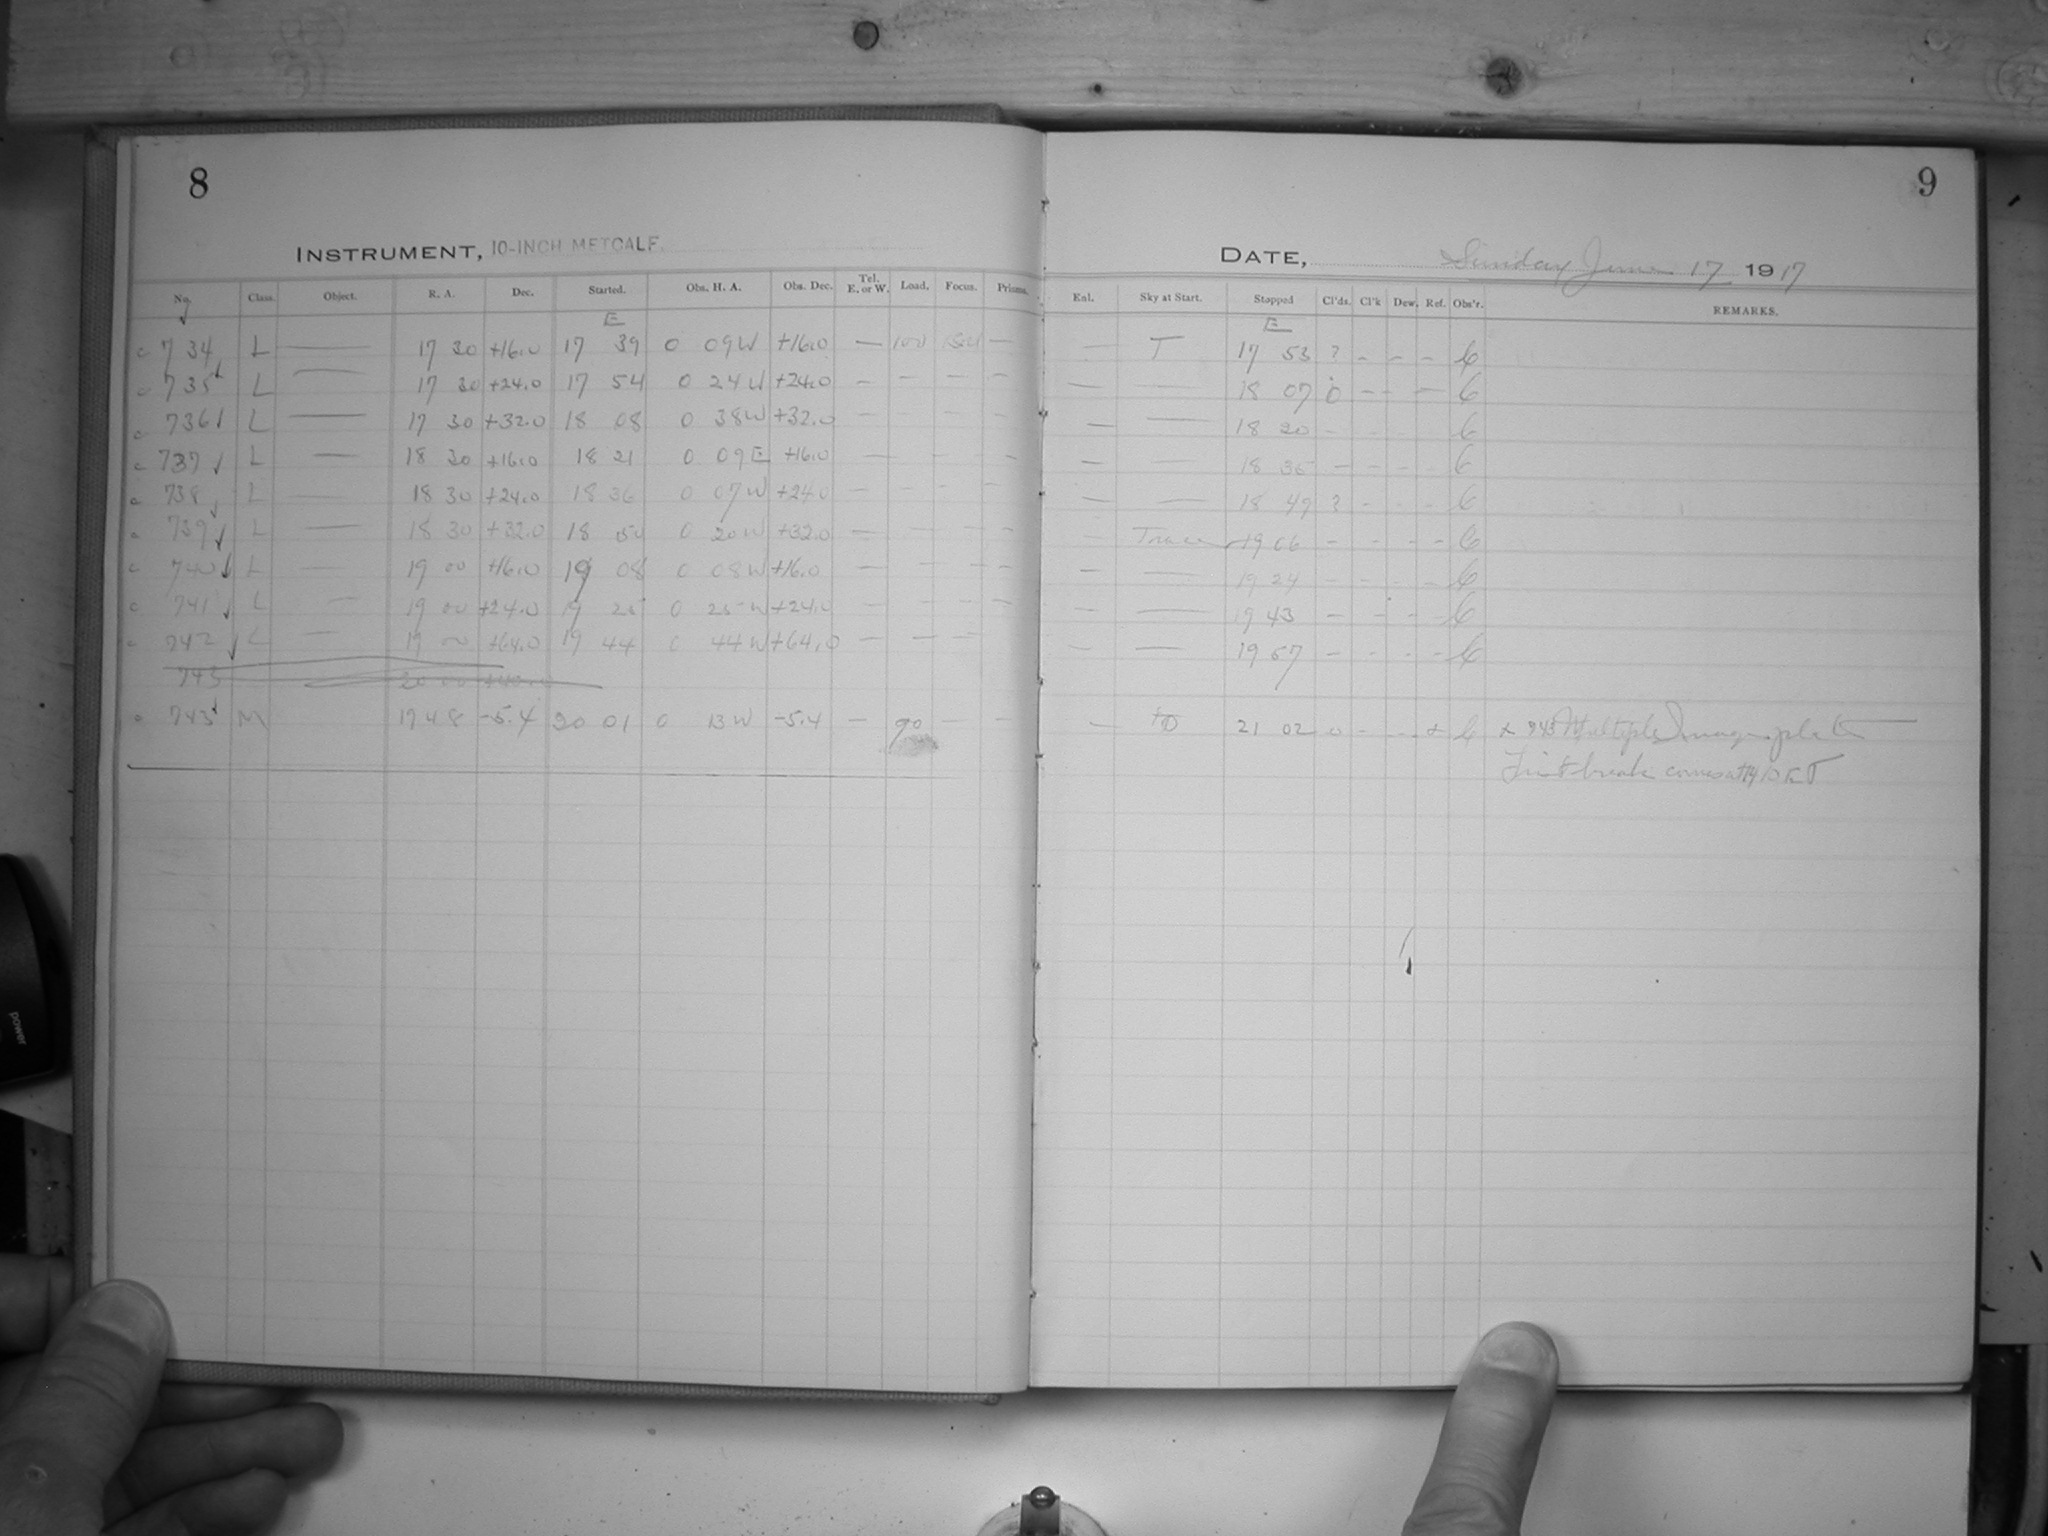 8
INSTRUMENT, 10-INCH METCALF.
No. Class. Object. R. A. Dec. Started. Obs. H. A. Obs. Dec. Tel. E. or W. Load. Focus. Prisms.
E
734 L — 17 30 +16.0 17 39 0 09W +16.0 — 100 —
735 L — 17 30 +24.0 17 54 0 24W +24.0 — — — —
736 L — 17 30 +32.0 18 08 0 38W +32.0 — — — —
737 L — 18 30 +16.0 18 21 0 09E +16.0 — — — —
738 L — 18 30 +24.0 18 36 0 07W +24.0 — — — —
739 L — 18 30 +32.0 18 50 0 20W +32.0 — — — —
740 L — 19 00 +16.0 19 08 0 08W +16.0 — — — —
741 L — 19 00 +24.0 19 25 0 25W +24.0 — — — —
742 L — 19 00 +64.0 19 44 0 44W +64.0 — — —
743 20 00
743 M 17 48 -5.4 20 01 0 13W -5.4 — 90 — —
9
DATE, Sunday June 17 1917
Enl. Sky at Start. Stopped Cl'ds. Cl'k Dew. Ref. Obs'r. REMARKS.
E
— T 17 53 ? - - -
— — 18 07 0 - - -
— — 18 20 - - - -
— — 18 35 - - - -
— — 18 49 ? - - -
— 19 06 - - - -
— — 19 24 - - - -
— — 19 43 - - - -
— — 19 57 - - - -
— 21 02 0 - - x x 743 Multiple Image plate
First break comes at
power